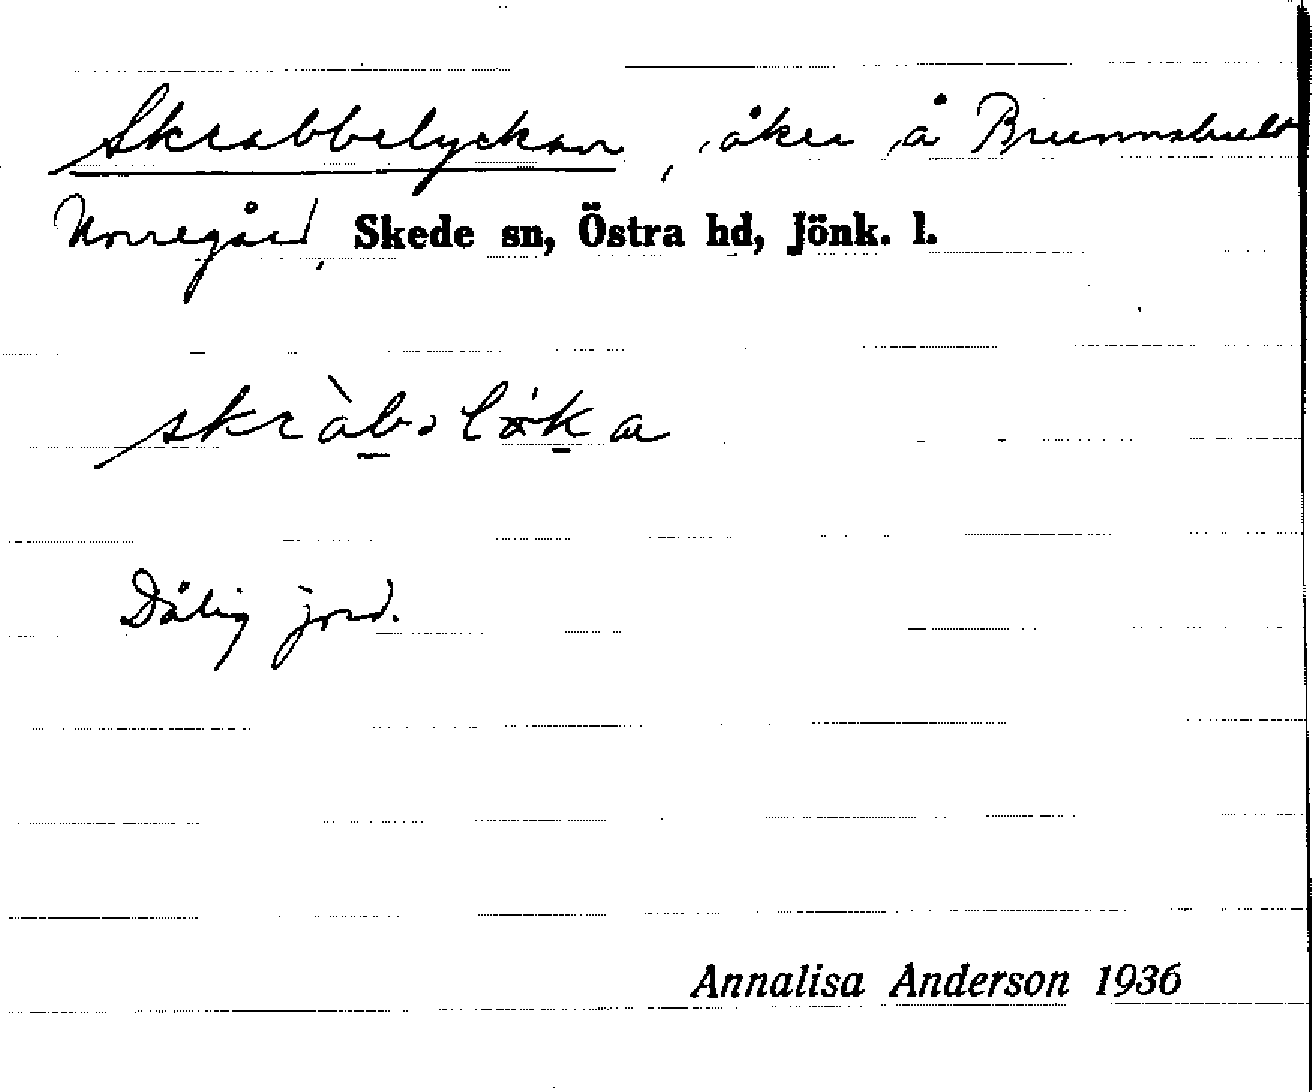 Skrabbelyckan, åker å Brunnshult
Norregård, Skede sn, Östra hd, Jönk. l.
skràbəlö́ka
Dålig jord.
Annalisa Anderson 1936